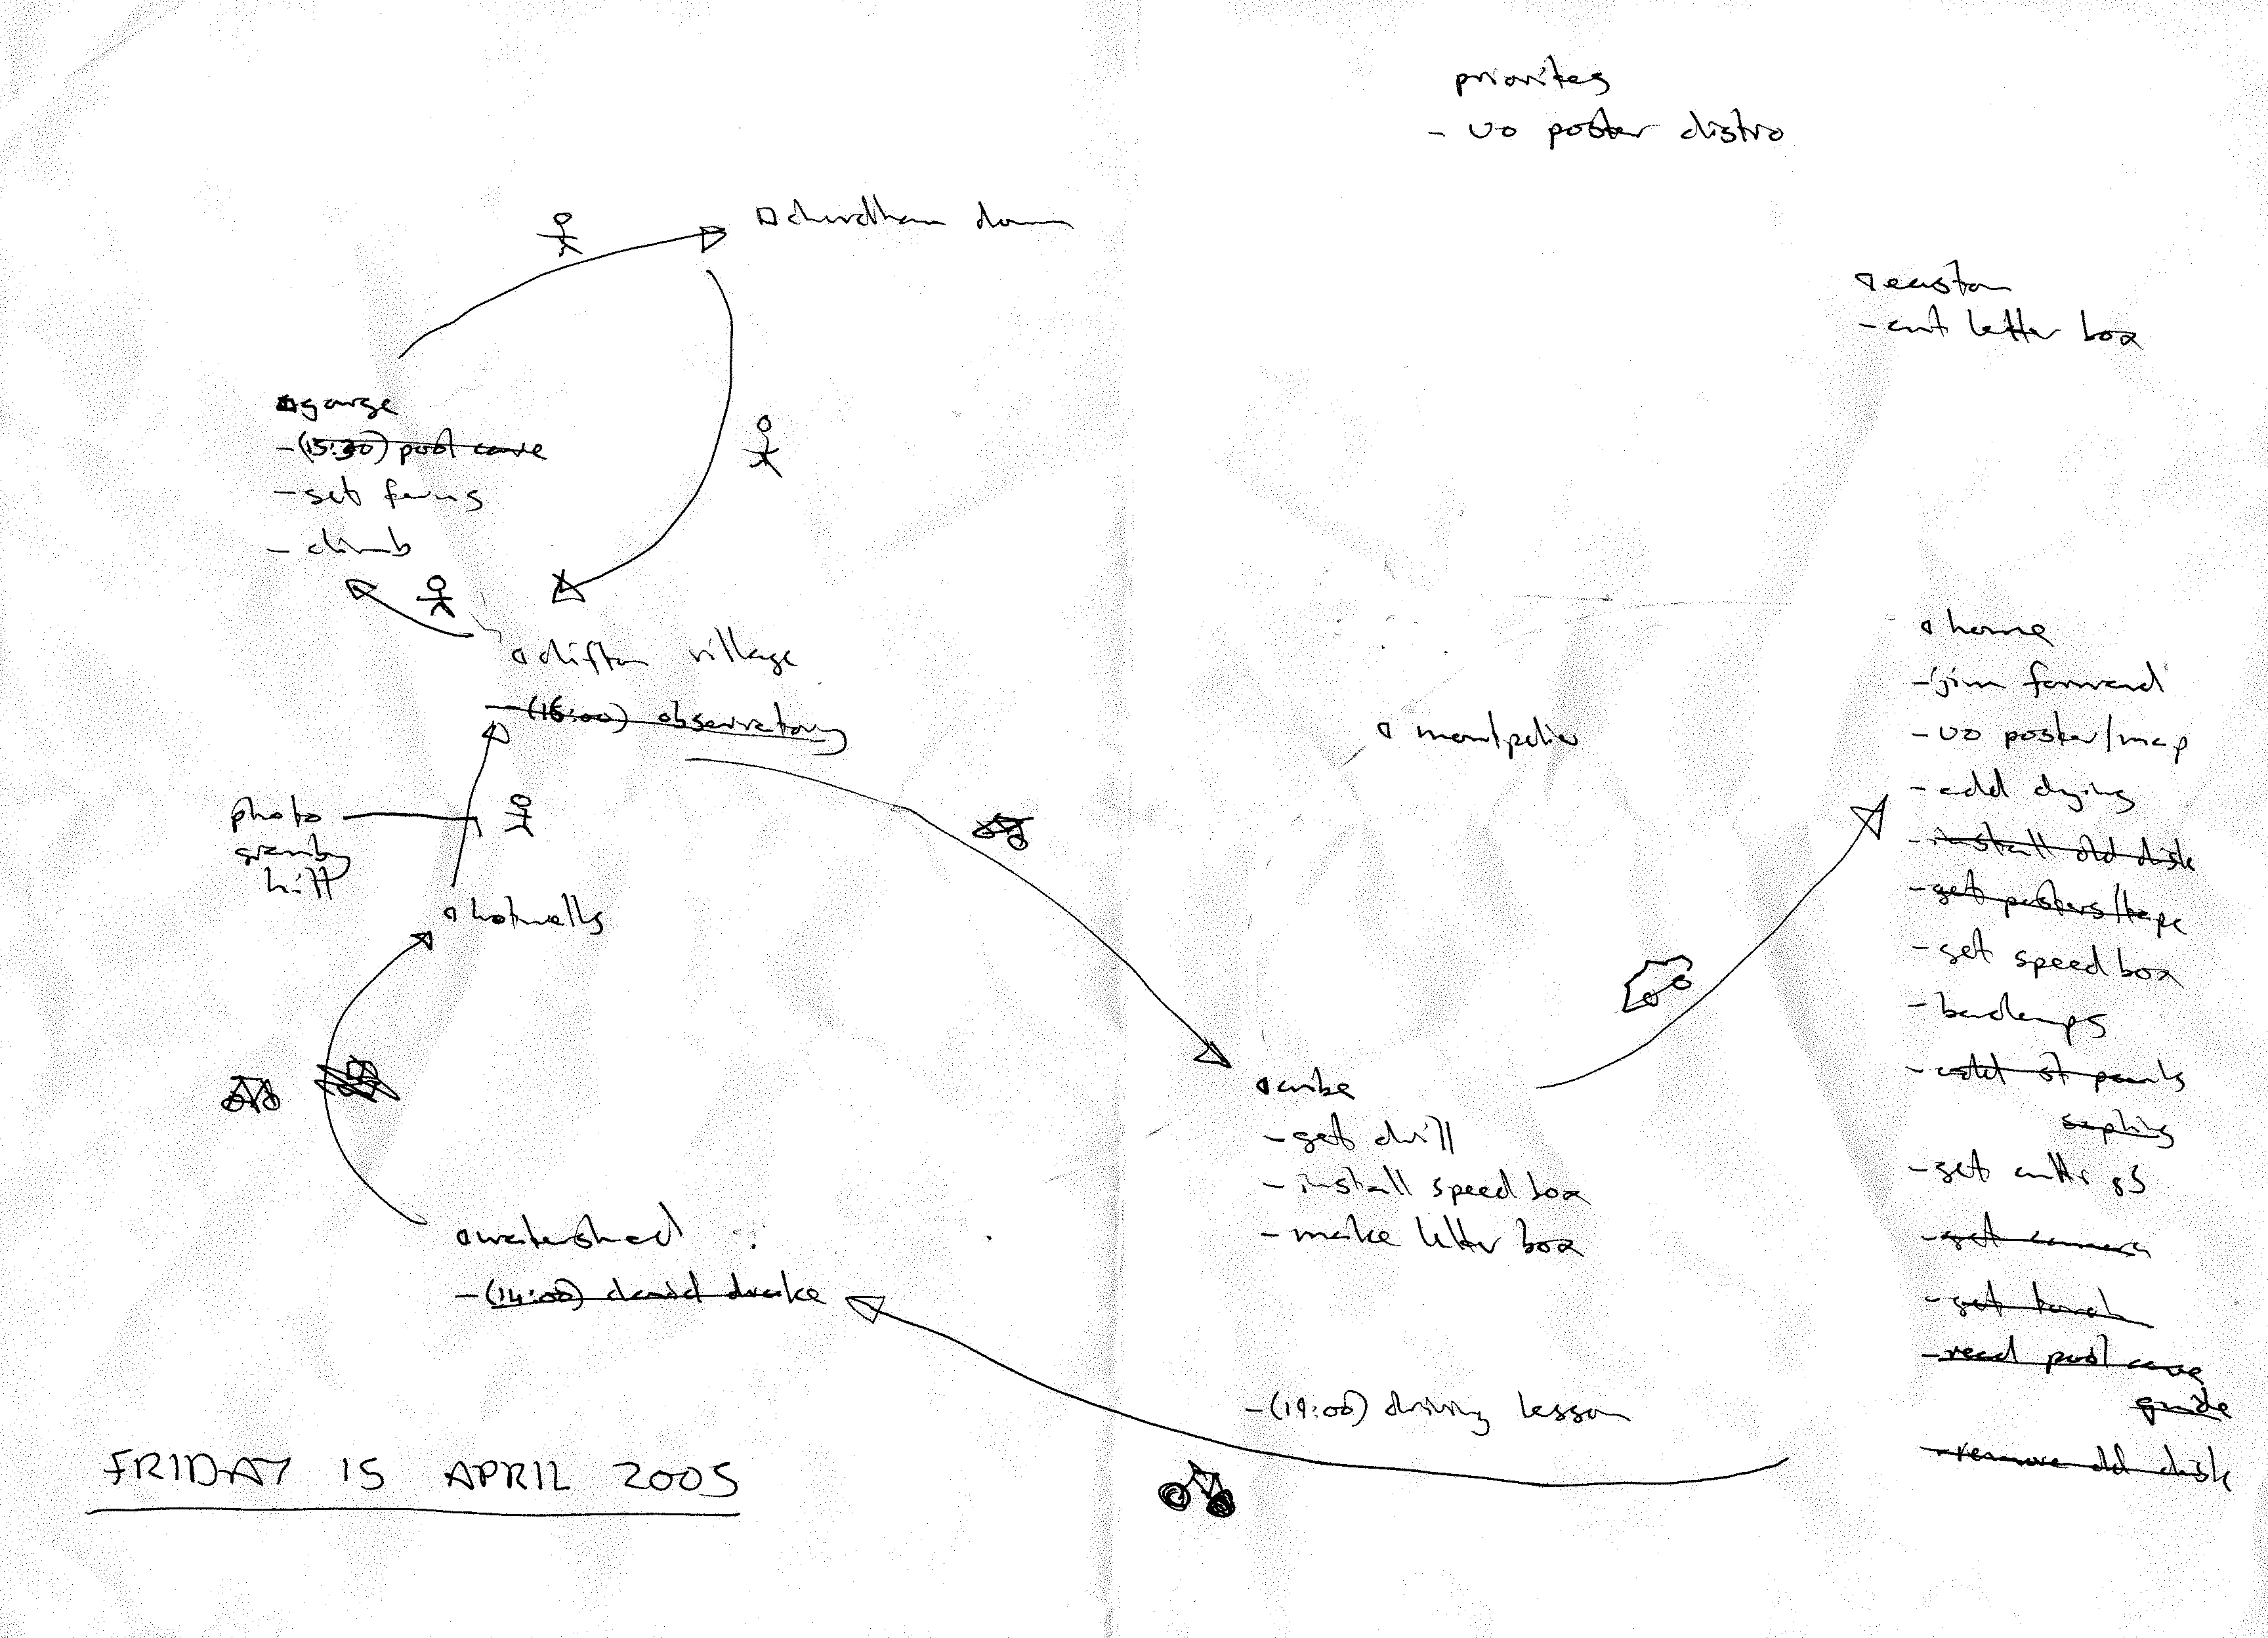 priorites
- uo poster distro
durdham down
easton
- cut letter box
gorge
- (15:30) pool cave
- set
- climb
clifton village
- (16:00) observatory
photo
granby
hill
hotwells
watershed
- (14:00) david drake
montpelier
cube
- get drill
- install speed box
- make letter box
- (19:00) driving lesson
home
- jim forward
- uo poster/map
- add
- install old disk
- get posters/tape
- get speed box
-
- add st pauls
- get
- get camera
- get torch
- read pool cave
guide
- remove old disk
FRIDAY 15 APRIL 2005